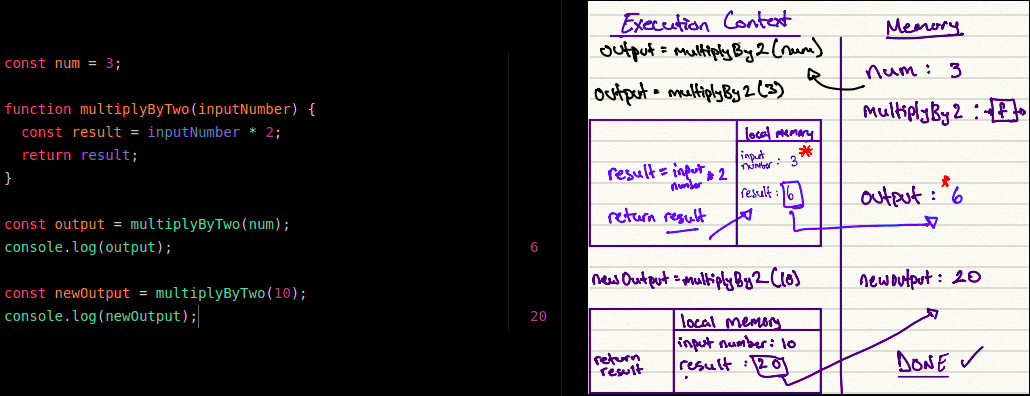 const num = 3;
function multiplyByTwo(inputNumber) {
const result = inputNumber * 2;
return result;
}
const output = multiplyByTwo(num);
console.log(output);
6
const newOutput = multiplyByTwo(10);
console.log(newOutput);
20
Execution Context
output = multiplyBy2(num)
output = multiplyBy2(3)
local memory
input number: 3 *
result = input number * 2
result: 6
return result
newOutput = multiplyBy2(10)
local memory
input number: 10
return result
result : 20
Memory
num : 3
multiplyBy2 : f
output : * 6
newoutput : 20
DONE ✓